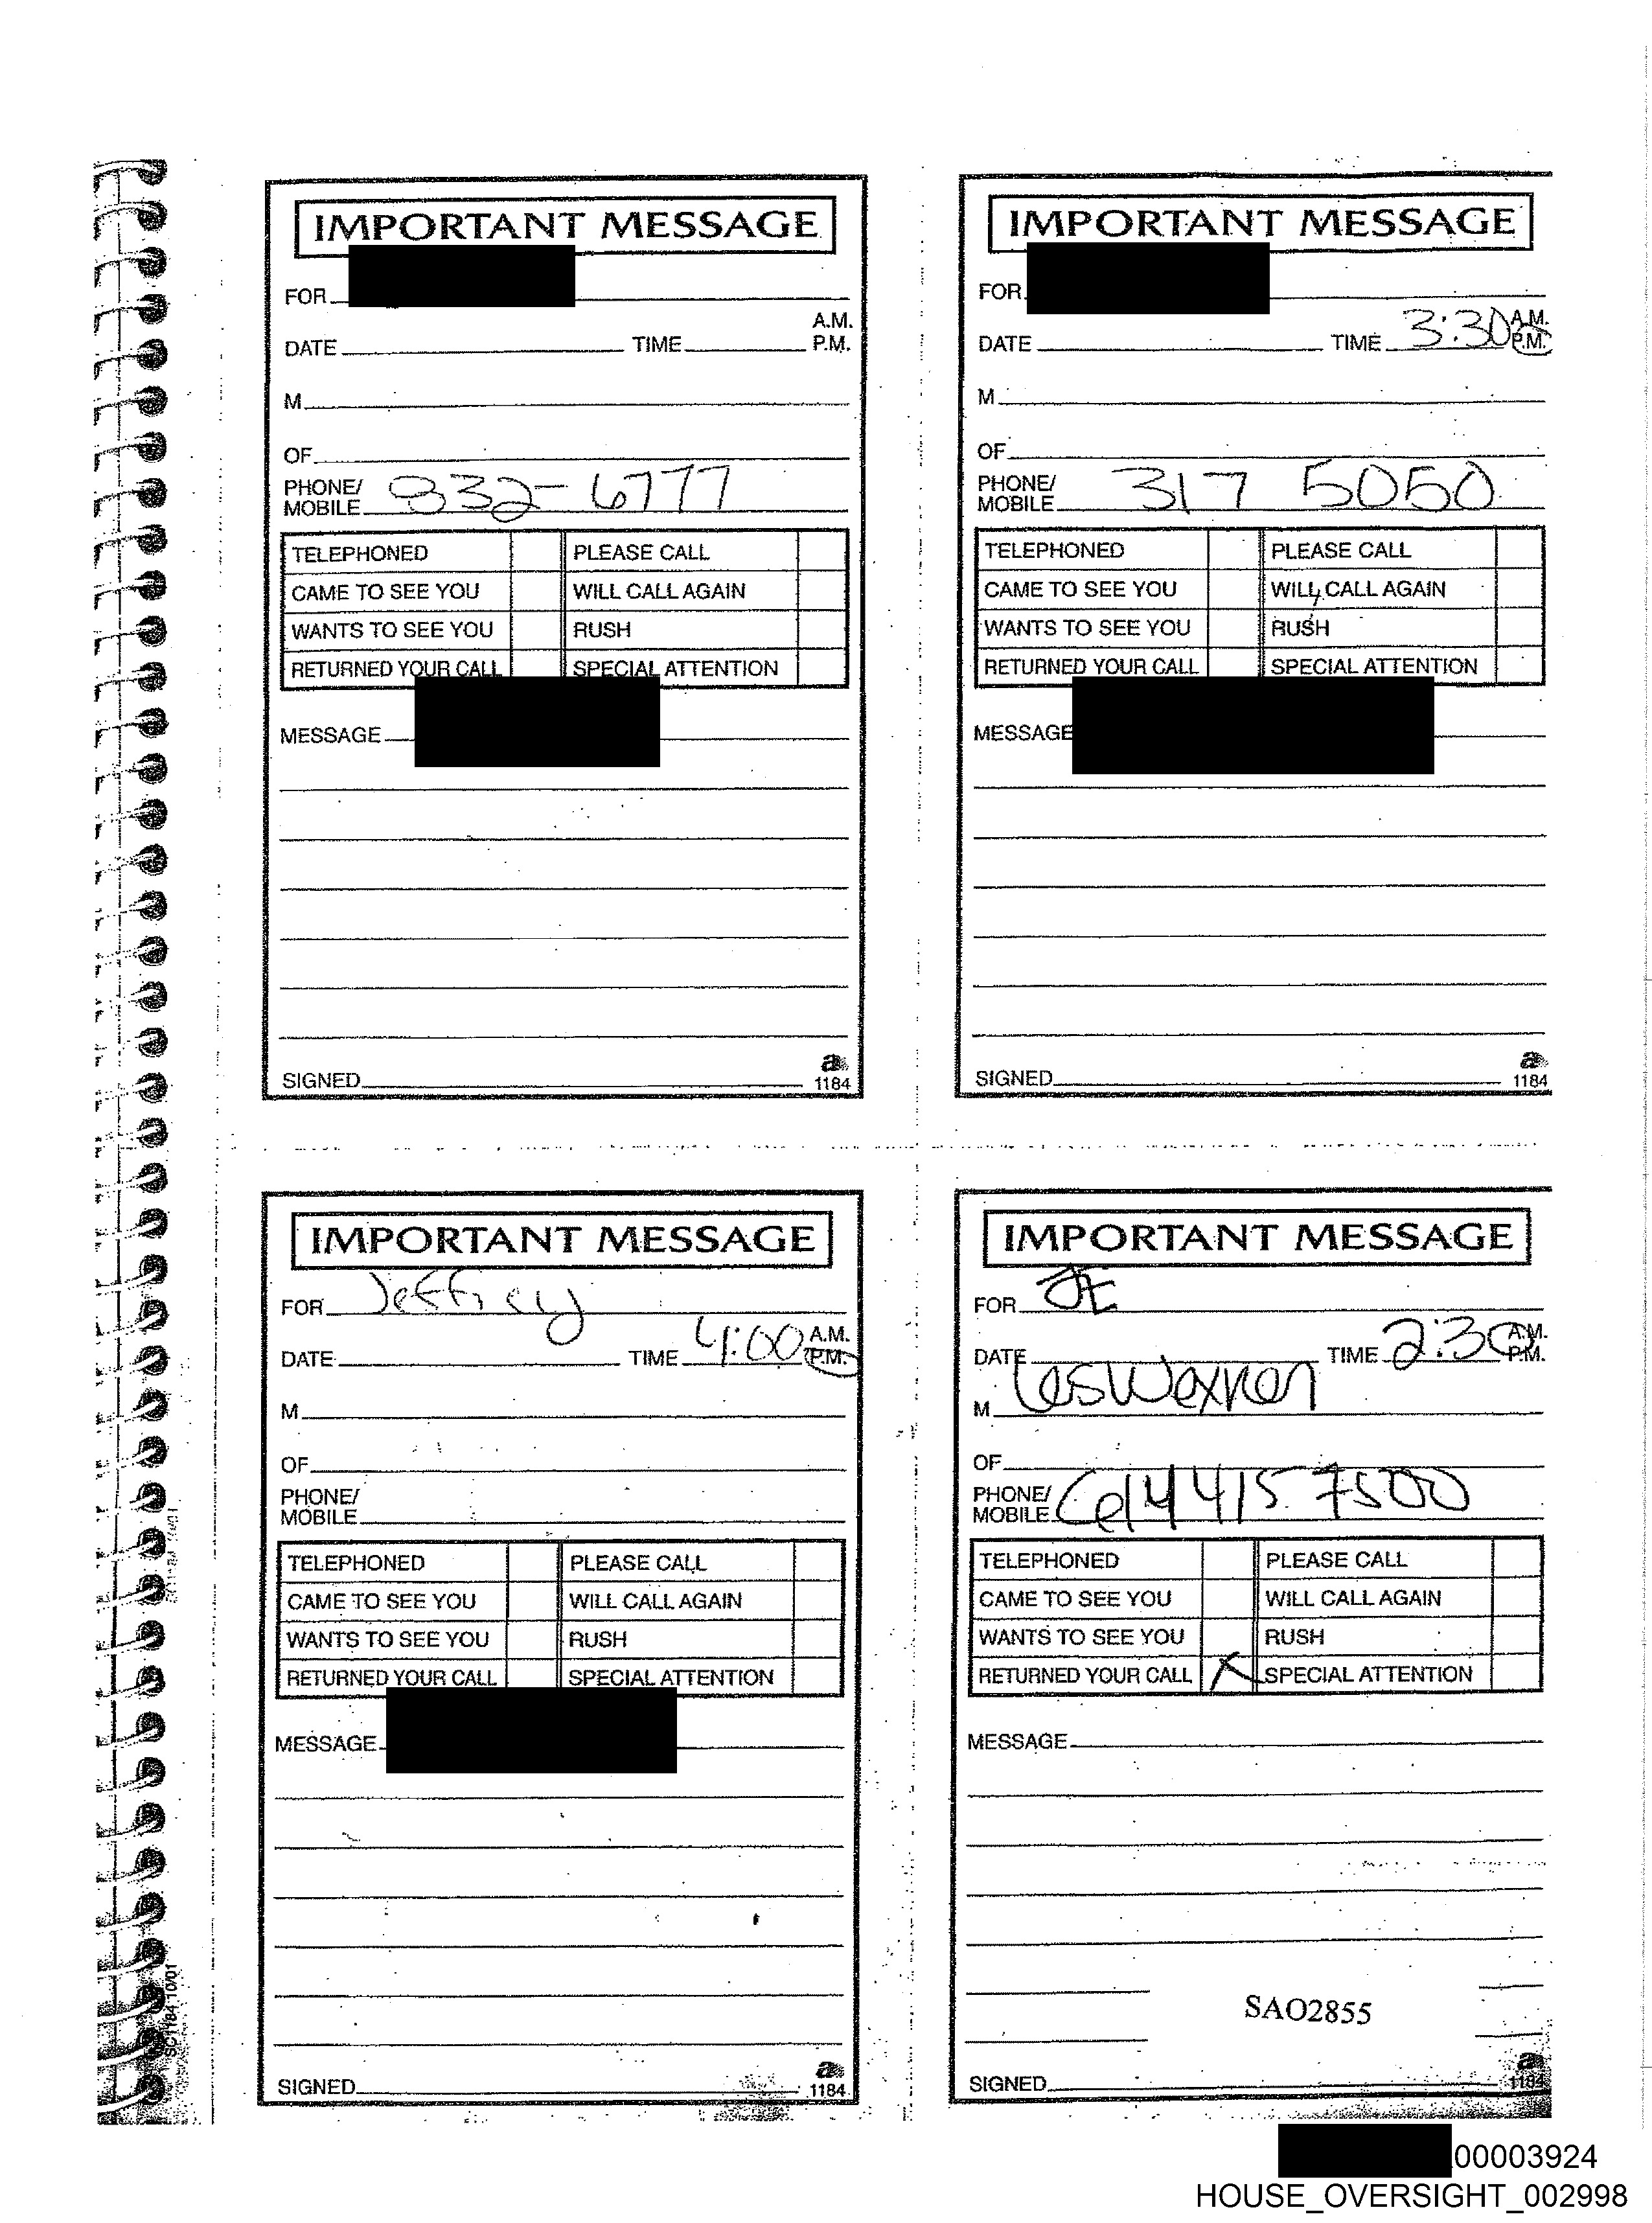 IMPORTANT MESSAGE
FOR
A.M.
DATE TIME P.M.
M
OF
PHONE/
MOBILE 832-6777
TELEPHONED PLEASE CALL
CAME TO SEE YOU WILL CALL AGAIN
WANTS TO SEE YOU RUSH
RETURNED YOUR CALL SPECIAL ATTENTION
MESSAGE
SIGNED
a
1184
IMPORTANT MESSAGE
FOR
A.M.
DATE TIME 3:30 P.M.
M
OF
PHONE/
MOBILE 317 5050
TELEPHONED PLEASE CALL
CAME TO SEE YOU WILL CALL AGAIN
WANTS TO SEE YOU RUSH
RETURNED YOUR CALL SPECIAL ATTENTION
MESSAGE
SIGNED
a
1184
IMPORTANT MESSAGE
FOR Jeffrey
A.M.
DATE TIME 4:00 P.M.
M
OF
PHONE/
MOBILE
TELEPHONED PLEASE CALL
CAME TO SEE YOU WILL CALL AGAIN
WANTS TO SEE YOU RUSH
RETURNED YOUR CALL SPECIAL ATTENTION
MESSAGE
SIGNED
a
1184
IMPORTANT MESSAGE
FOR JE
A.M.
DATE TIME 2:30 P.M.
M Les Wexner
OF
PHONE/
MOBILE 614 415 7500
TELEPHONED PLEASE CALL
CAME TO SEE YOU WILL CALL AGAIN
WANTS TO SEE YOU RUSH
RETURNED YOUR CALL X SPECIAL ATTENTION
MESSAGE
SAO2855
SIGNED
a
1184
SC1184 10/01
00003924
HOUSE_OVERSIGHT_002998